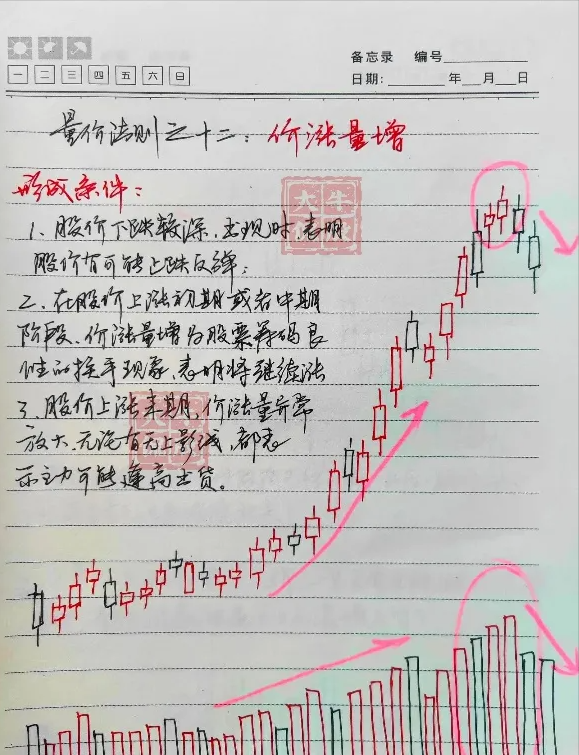 备忘录 编号
一 二 三 四 五 六 日
日期: 年 月 日
量价法则之十二：价涨量增
形成条件：
1、股价下跌较深，出现时，表明
股价有可能止跌反弹；
2、在股价上涨初期或者中期
阶段、价涨量增为股票筹码良
性的换手现象，表明将继续涨
3、股价上涨末期，价涨量异常
放大、无论有无上影线，都表
示主力可能逢高出货。
大牛
大牛